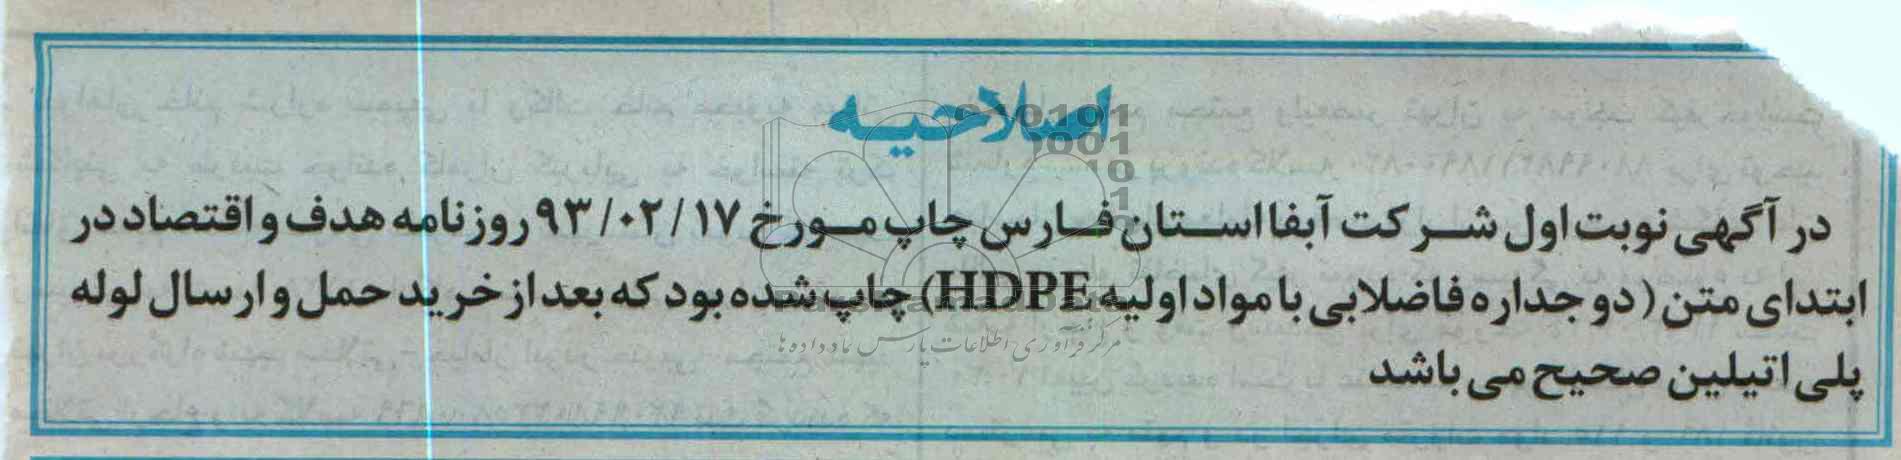 اصلاحیه
در آگهی نوبت اول شرکت آبفا استان فارس چاپ مورخ ۹۳/۰۲/۱۷ روزنامه هدف و اقتصاد در
ابتدای متن (دو جداره فاضلابی با مواد اولیه HDPE) چاپ شده بود که بعد از خرید حمل و ارسال لوله
پلی اتیلین صحیح می باشد
مرکز فرآوری اطلاعات پارس ماد داده ها